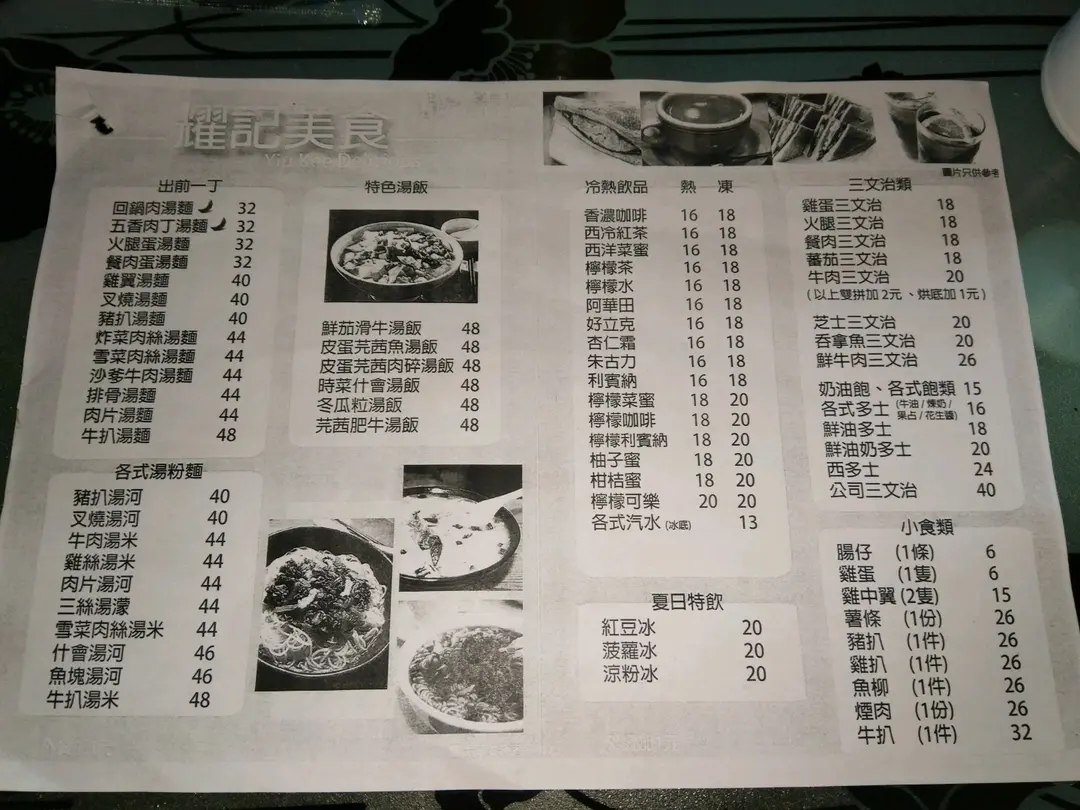 耀記美食
Yiu Kee Delicious
圖片只供參考
出前一丁
回鍋肉湯麵 32
五香肉丁湯麵 32
火腿蛋湯麵 32
餐肉蛋湯麵 32
雞翼湯麵 40
叉燒湯麵 40
豬扒湯麵 40
炸菜肉絲湯麵 44
雪菜肉絲湯麵 44
沙爹牛肉湯麵 44
排骨湯麵 44
肉片湯麵 44
牛扒湯麵 48
各式湯粉麵
豬扒湯河 40
叉燒湯河 40
牛肉湯米 44
雞絲湯米 44
肉片湯河 44
三絲湯濛 44
雪菜肉絲湯米 44
什會湯河 46
魚塊湯河 46
牛扒湯米 48
特色湯飯
鮮茄滑牛湯飯 48
皮蛋芫茜魚湯飯 48
皮蛋芫茜肉碎湯飯 48
時菜什會湯飯 48
冬瓜粒湯飯 48
芫茜肥牛湯飯 48
冷熱飲品 熱 凍
香濃咖啡 16 18
西冷紅茶 16 18
西洋菜蜜 16 18
檸檬茶 16 18
檸檬水 16 18
阿華田 16 18
好立克 16 18
杏仁霜 16 18
朱古力 16 18
利賓納 16 18
檸檬菜蜜 18 20
檸檬咖啡 18 20
檸檬利賓納 18 20
柚子蜜 18 20
柑桔蜜 18 20
檸檬可樂 20 20
各式汽水 (冰底) 13
夏日特飲
紅豆冰 20
菠蘿冰 20
涼粉冰 20
三文治類
雞蛋三文治 18
火腿三文治 18
餐肉三文治 18
蕃茄三文治 18
牛肉三文治 20
(以上雙拼加 2元、烘底加 1元)
芝士三文治 20
吞拿魚三文治 20
鮮牛肉三文治 26
奶油飽、各式飽類 15
各式多士 (牛油 / 煉奶 / 果占 / 花生醬) 16
鮮油多士 18
鮮油奶多士 20
西多士 24
公司三文治 40
小食類
腸仔 (1條) 6
雞蛋 (1隻) 6
雞中翼 (2隻) 15
薯條 (1份) 26
豬扒 (1件) 26
雞扒 (1件) 26
魚柳 (1件) 26
煙肉 (1份) 26
牛扒 (1件) 32